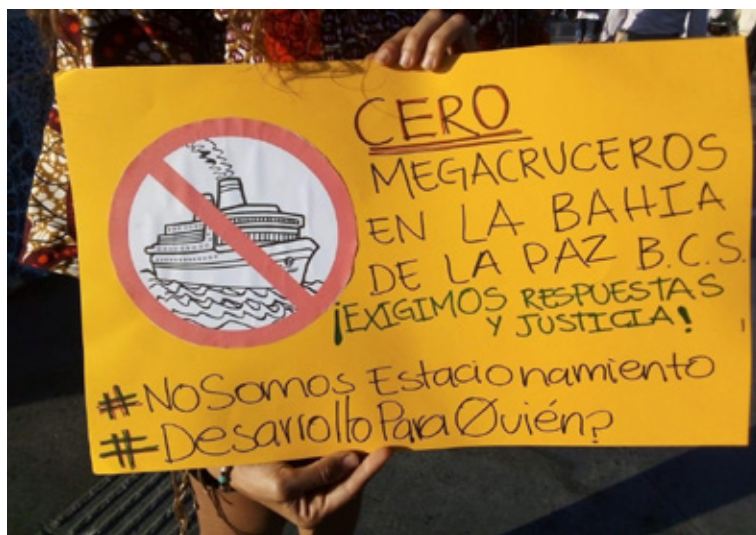 CERO
MEGACRUCEROS
EN LA BAHIA
DE LA PAZ B.C.S.
¡EXIGIMOS RESPUESTAS
Y JUSTICIA!
#NoSomos Estacionamiento
#DesarrolloParaQuién?